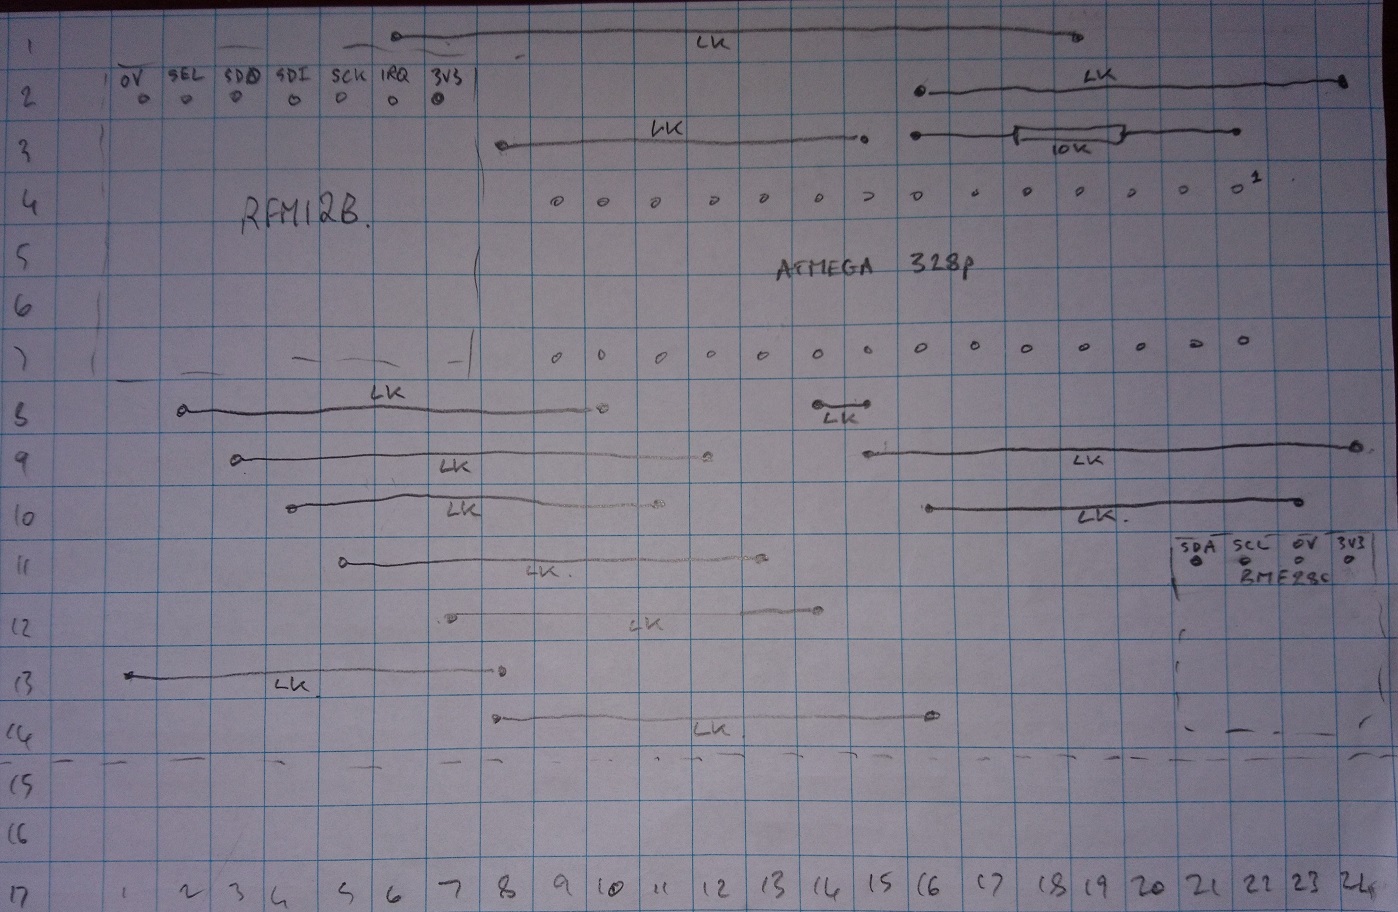 1
LK
0V SEL SDO SDI SCK IRQ 3V3
LK
2
LK
3
10K
4
1
RFM12B.
5
ATMEGA 328P
6
7
LK
8
LK
9
LK
LK
10
LK
LK.
SDA SCL 0V 3V3
11
LK.
BME280
12
LK
13
LK
14
LK
15
16
17 1 2 3 4 5 6 7 8 9 10 11 12 13 14 15 16 17 18 19 20 21 22 23 24